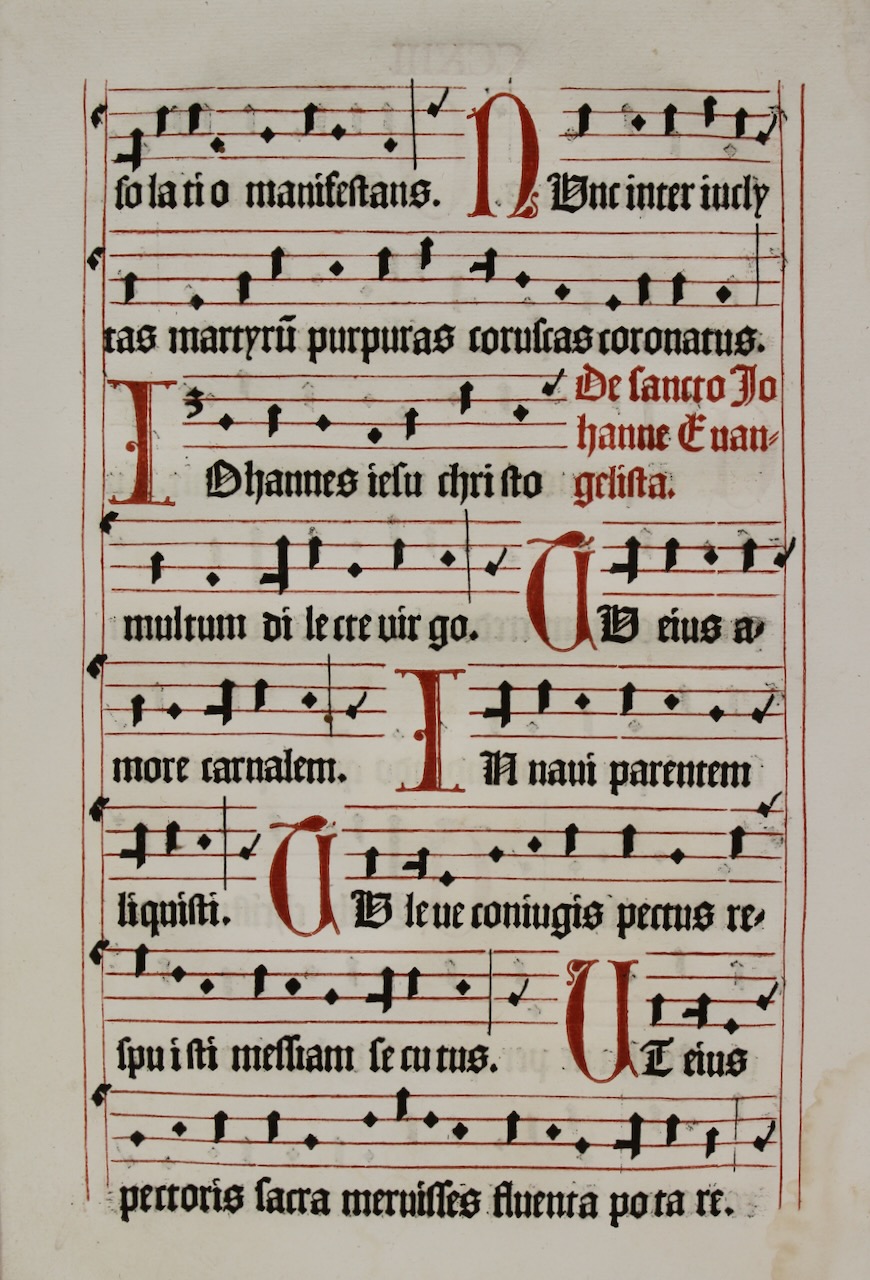 solatio manifestans. NUnc inter incly
tas martyrū purpuras coruscas coronatus.
De sancto Jo
hanne Euan-
gelista.
IOhannes iesu christo
multum dilecte uirgo. TU eius a-
more carnalem. IN naui parentem
liquisti. TU leue coniugis pectus re-
spuisti messiam secutus. UT eius
pectoris sacra meruisses fluenta potare.